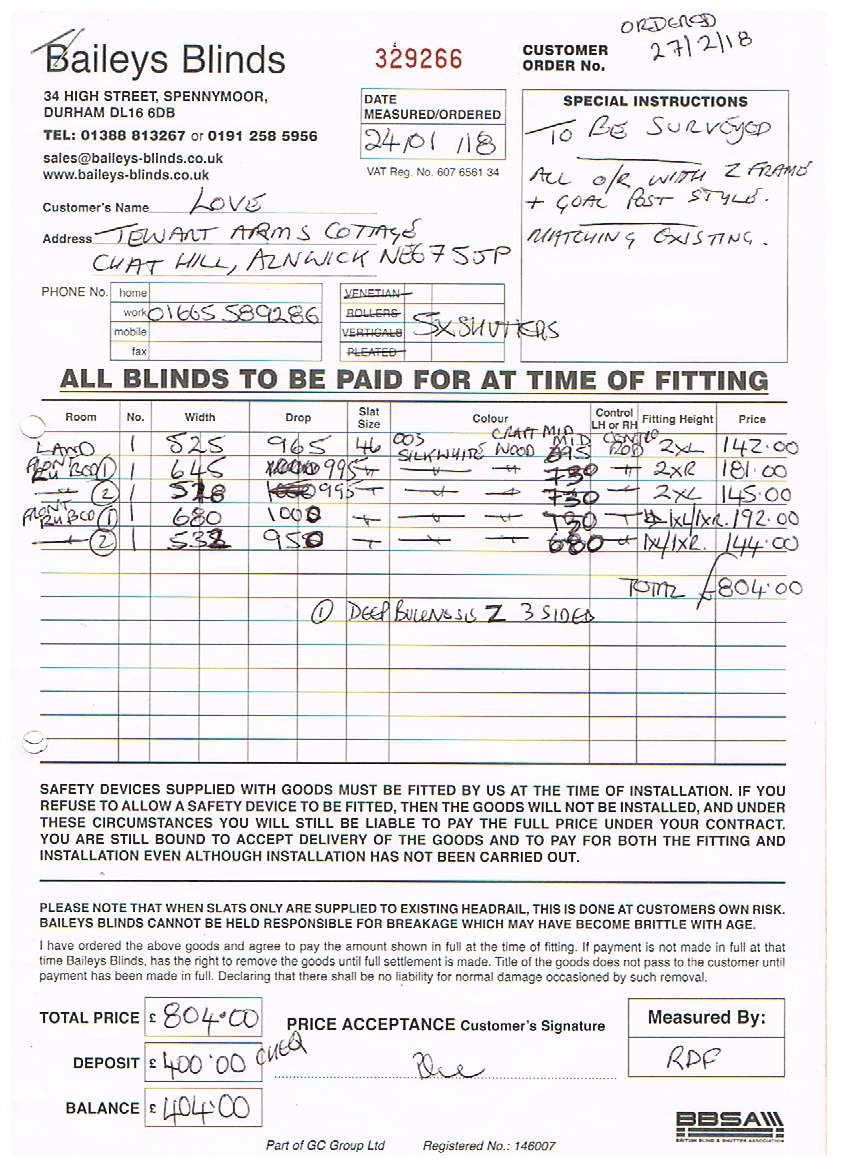 Baileys Blinds
34 HIGH STREET, SPENNYMOOR,
DURHAM DL16 6DB
TEL: 01388 813267 or 0191 258 5956
sales@baileys-blinds.co.uk
www.baileys-blinds.co.uk
329266
CUSTOMER
ORDER No.
ORDERED
27/2/18
DATE
MEASURED/ORDERED
24/01/18
VAT Reg. No. 607 6561 34
SPECIAL INSTRUCTIONS
TO BE SURVEYED
ALL O/R WITH Z FRAME
+ GOAL POST STYLE.
MATCHING EXISTING.
Customer's Name LOVE
Address TEWART ARMS COTTAGE
CHAT HILL, ALNWICK NE67 5JP
PHONE No. home
work 01665 589286
mobile
fax
VENETIAN
ROLLERS
VERTICALS
PLEATED
5X SHUTTERS
ALL BLINDS TO BE PAID FOR AT TIME OF FITTING
Room No. Width Drop Slat Size Colour Control LH or RH Fitting Height Price
LAND 1 525 965 46 003 SILKWHITE CRAFTWOOD MID 2XL 142.00
1 645 995 730 2XR 181.00
② 1 995 730 2XL 145.00
① 1 680 1000 1XL/1XR. 192.00
② 1 532 950 680 1X/1XR. 144.00
TOTAL £804.00
① DEEP Z 3 SIDED
SAFETY DEVICES SUPPLIED WITH GOODS MUST BE FITTED BY US AT THE TIME OF INSTALLATION. IF YOU
REFUSE TO ALLOW A SAFETY DEVICE TO BE FITTED, THEN THE GOODS WILL NOT BE INSTALLED, AND UNDER
THESE CIRCUMSTANCES YOU WILL STILL BE LIABLE TO PAY THE FULL PRICE UNDER YOUR CONTRACT.
YOU ARE STILL BOUND TO ACCEPT DELIVERY OF THE GOODS AND TO PAY FOR BOTH THE FITTING AND
INSTALLATION EVEN ALTHOUGH INSTALLATION HAS NOT BEEN CARRIED OUT.
PLEASE NOTE THAT WHEN SLATS ONLY ARE SUPPLIED TO EXISTING HEADRAIL, THIS IS DONE AT CUSTOMERS OWN RISK.
BAILEYS BLINDS CANNOT BE HELD RESPONSIBLE FOR BREAKAGE WHICH MAY HAVE BECOME BRITTLE WITH AGE.
I have ordered the above goods and agree to pay the amount shown in full at the time of fitting. If payment is not made in full at that
time Baileys Blinds, has the right to remove the goods until full settlement is made. Title of the goods does not pass to the customer until
payment has been made in full. Declaring that there shall be no liability for normal damage occasioned by such removal.
TOTAL PRICE £ 804.00
DEPOSIT £ 400.00 CHEQ
BALANCE £ 404.00
PRICE ACCEPTANCE Customer's Signature
Measured By:
RDF
BBSA
BRITISH BLIND & SHUTTER ASSOCIATION
Part of GC Group Ltd Registered No.: 146007